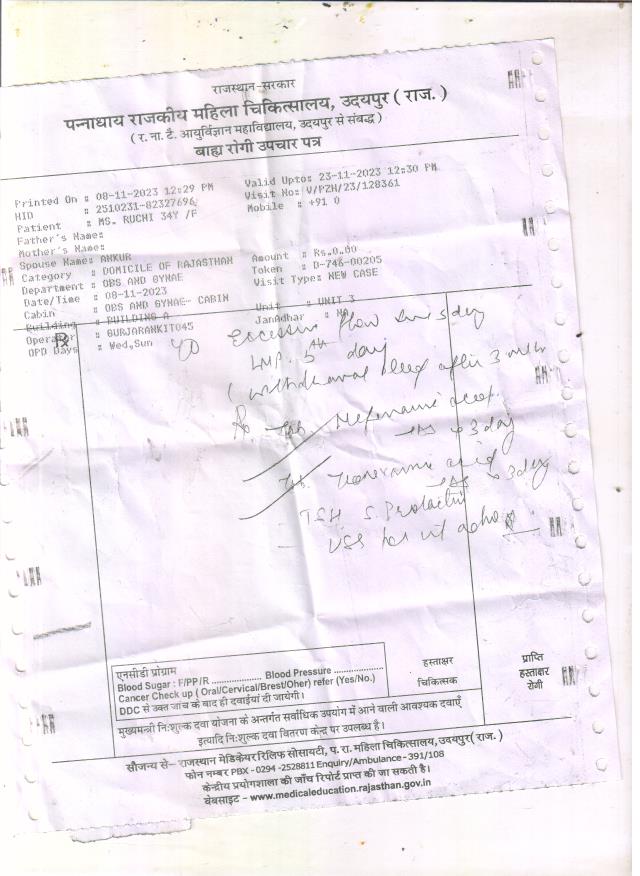 राजस्थान-सरकार
पन्नाधाय राजकीय महिला चिकित्सालय, उदयपुर ( राज. )
( र. ना. टै. आयुर्विज्ञान महाविद्यालय, उदयपुर से संबद्ध )
बाह्य रोगी उपचार पत्र
Printed On : 08-11-2023 12:29 PM Valid Upto: 23-11-2023 12:30 PM
HID : 2510231-82327696 Visit No: V/PZH/23/128361
Patient : MS. RUCHI 34Y /F Mobile : +91 0
Father's Name:
Mother's Name:
Spouse Name: ANKUR Amount : Rs.0.00
Category : DOMICILE OF RAJASTHAN Token : D-748-00205
Department : OBS AND GYNAE Visit Type: NEW CASE
Date/Time : 08-11-2023
Cabin : OBS AND GYNAE- CABIN Unit : UNIT 3
Building : BUILDING A JanAadhar : NA
Operator : GURJARANKIT045
OPD Days : Wed,Sun
Rx
Excessive flow since 3 day
LMP. 5th day
( withdrawal bleed after 3 mth
Rx Tab. Mefenamic acid
x 3 day
Tab. Tranexamic acid
x 3 day
TSH S. Prolactin
USG
एनसीडी प्रोग्राम
Blood Sugar : F/PP/R .................... Blood Pressure ....................
Cancer Check up ( Oral/Cervical/Brest/Oher) refer (Yes/No.)
DDC से उक्त जांच के बाद ही दवाईयां दी जायेगी।
हस्ताक्षर
चिकित्सक
प्राप्ति
हस्ताक्षर
रोगी
मुख्यमन्त्री निःशुल्क दवा योजना के अन्तर्गत सर्वाधिक उपयोग में आने वाली आवश्यक दवाएँ
इत्यादि निःशुल्क दवा वितरण केन्द्र पर उपलब्ध है।
सौजन्य से– राजस्थान मेडिकेयर रिलिफ सोसायटी, प. रा. महिला चिकित्सालय, उदयपुर( राज. )
फोन नम्बर PBX - 0294 -2528811 Enquiry/Ambulance - 391/108
केन्द्रीय प्रयोगशाला की जाँच रिपोर्ट प्राप्त की जा सकती है।
वेबसाइट – www.medicaleducation.rajasthan.gov.in